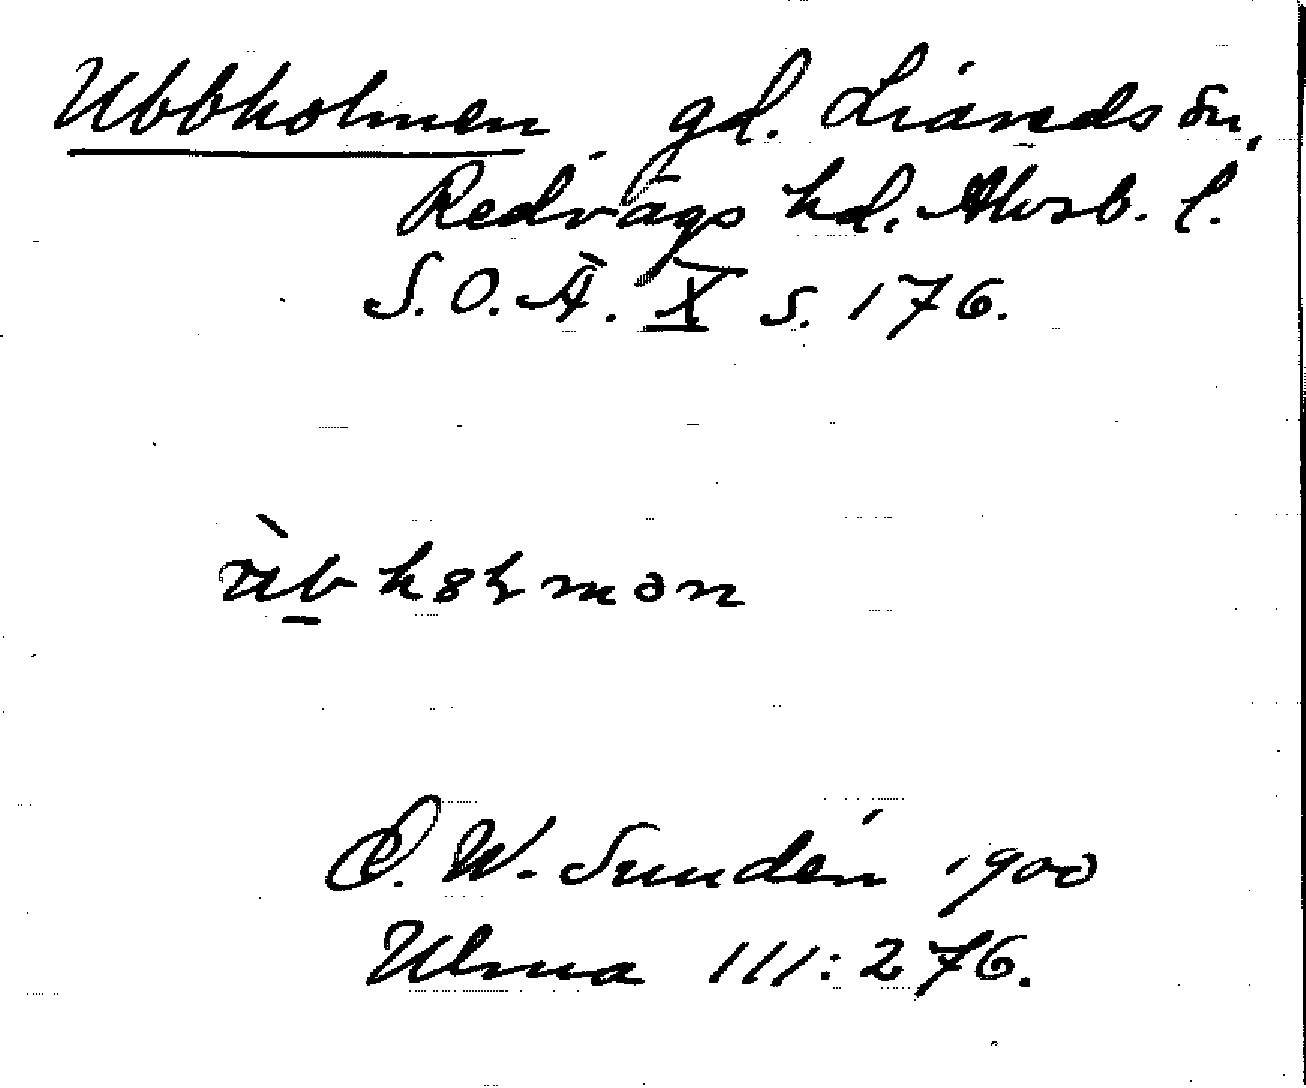 Ubbkolmen gd. Liareds sn,
Redvägs hd. Älvsb. l.
S.O.Ä. X s. 176.
D. W. Sundén 1900
Ulma 111:276.